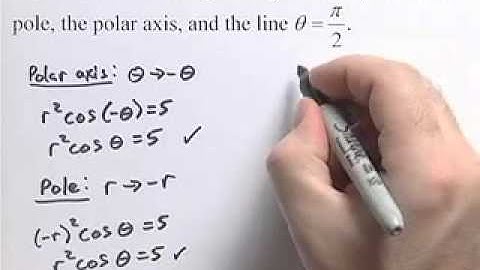 pole, the polar axis, and the line θ = π/2.
Polar axis: θ → -θ
r² cos (-θ) = 5
r² cos θ = 5 ✓
Pole: r → -r
(-r)² cos θ = 5
r² cos θ = 5 ✓
Sharpie